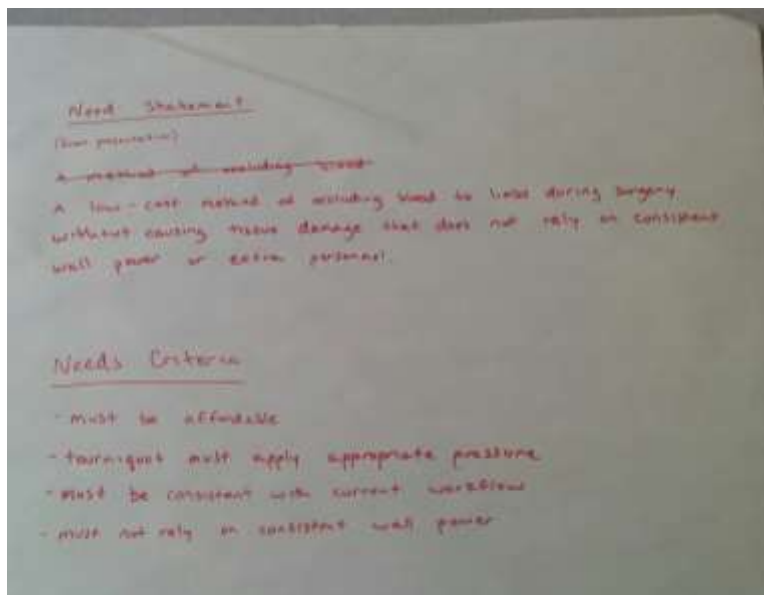 Need Statement
(from presentation)
A method of occluding blood
A low-cost method of occluding blood to limbs during surgery
without causing tissue damage that does not rely on consistent
wall power or extra personnel.
Needs Criteria
- must be affordable
- tourniquet must apply appropriate pressure
- must be consistent with current workflow
- must not rely on consistent wall power